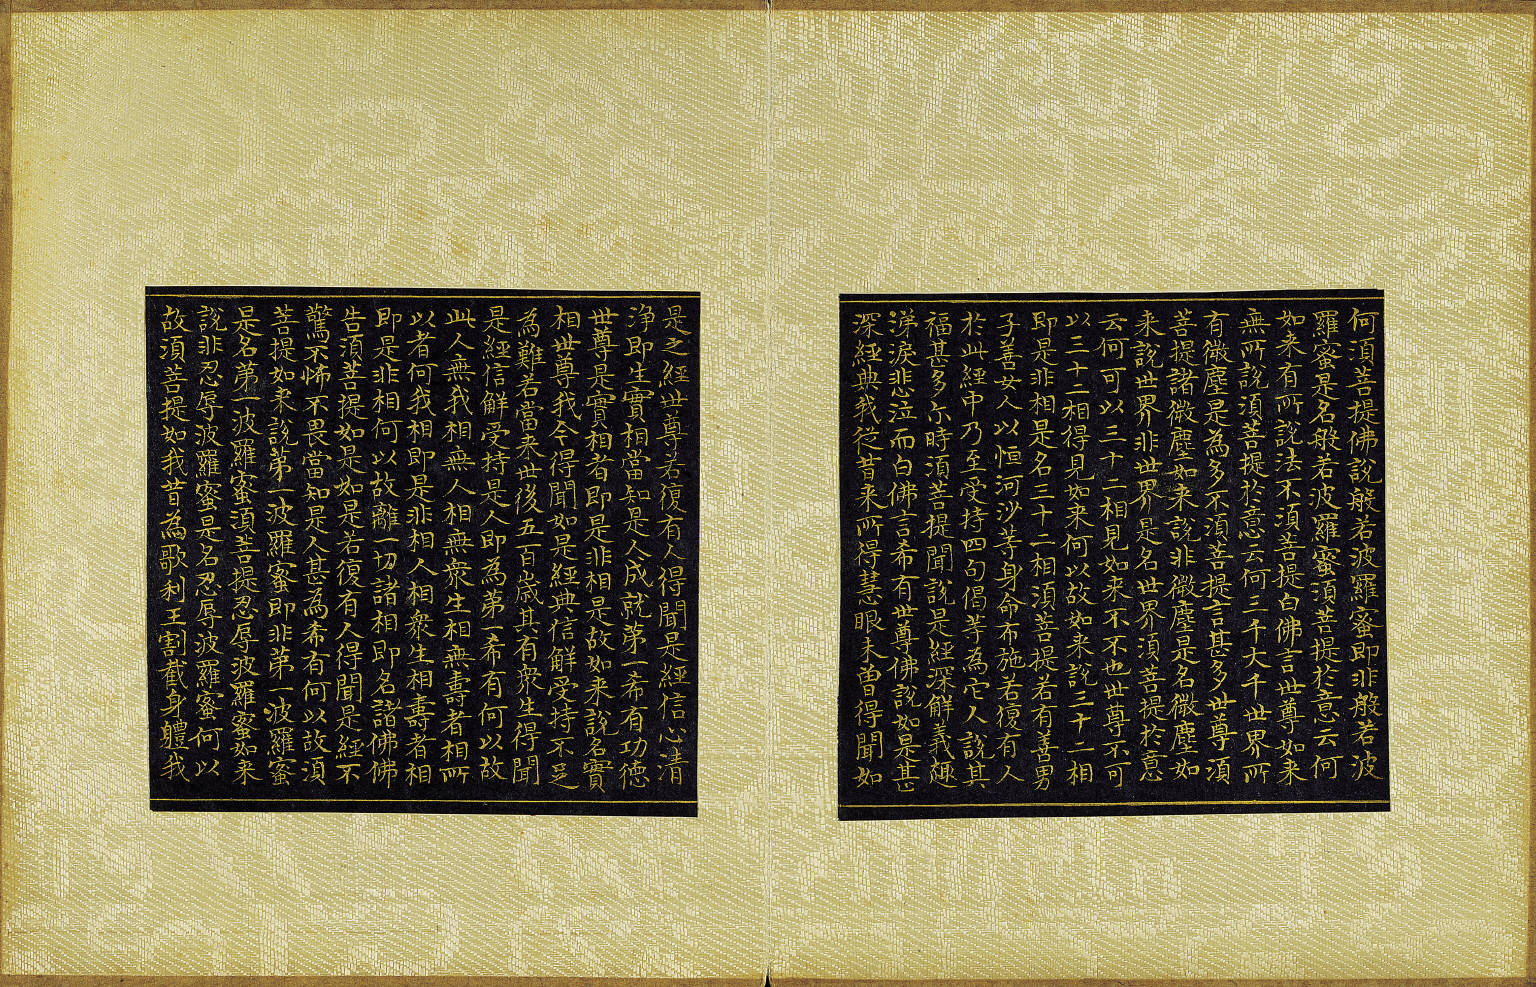 何須菩提佛說般若波羅蜜即非般若波
羅蜜是名般若波羅蜜須菩提於意云何
如来有所說法不須菩提白佛言世尊如来
無所說須菩提於意云何三千大千世界所
有微塵是為多不須菩提言甚多世尊須
菩提諸微塵如来說非微塵是名微塵如
来說世界非世界是名世界須菩提於意
云何可以三十二相見如来不不也世尊不可
以三十二相得見如来何以故如来說三十二相
即是非相是名三十二相須菩提若有善男
子善女人以恒河沙等身命布施若復有人
於此經中乃至受持四句偈等為它人說其
福甚多尓時須菩提聞說是經深解義趣
涕淚悲泣而白佛言希有世尊佛說如是甚
深經典我從昔来所得慧眼未曾得聞如
是之經世尊若復有人得聞是經信心清
淨即生實相當知是人成就第一希有功德
世尊是實相者即是非相是故如来說名實
相世尊我今得聞如是經典信解受持不足
為難若當来世後五百歲其有衆生得聞
是經信解受持是人即為第一希有何以故
此人無我相無人相無衆生相無壽者相所
以者何我相即是非相人相衆生相壽者相
即是非相何以故離一切諸相即名諸佛佛
告須菩提如是如是若復有人得聞是經不
驚不怖不畏當知是人甚為希有何以故須
菩提如来說第一波羅蜜即非第一波羅蜜
是名第一波羅蜜須菩提忍辱波羅蜜如来
說非忍辱波羅蜜是名忍辱波羅蜜何以
故須菩提如我昔為歌利王割截身軆我